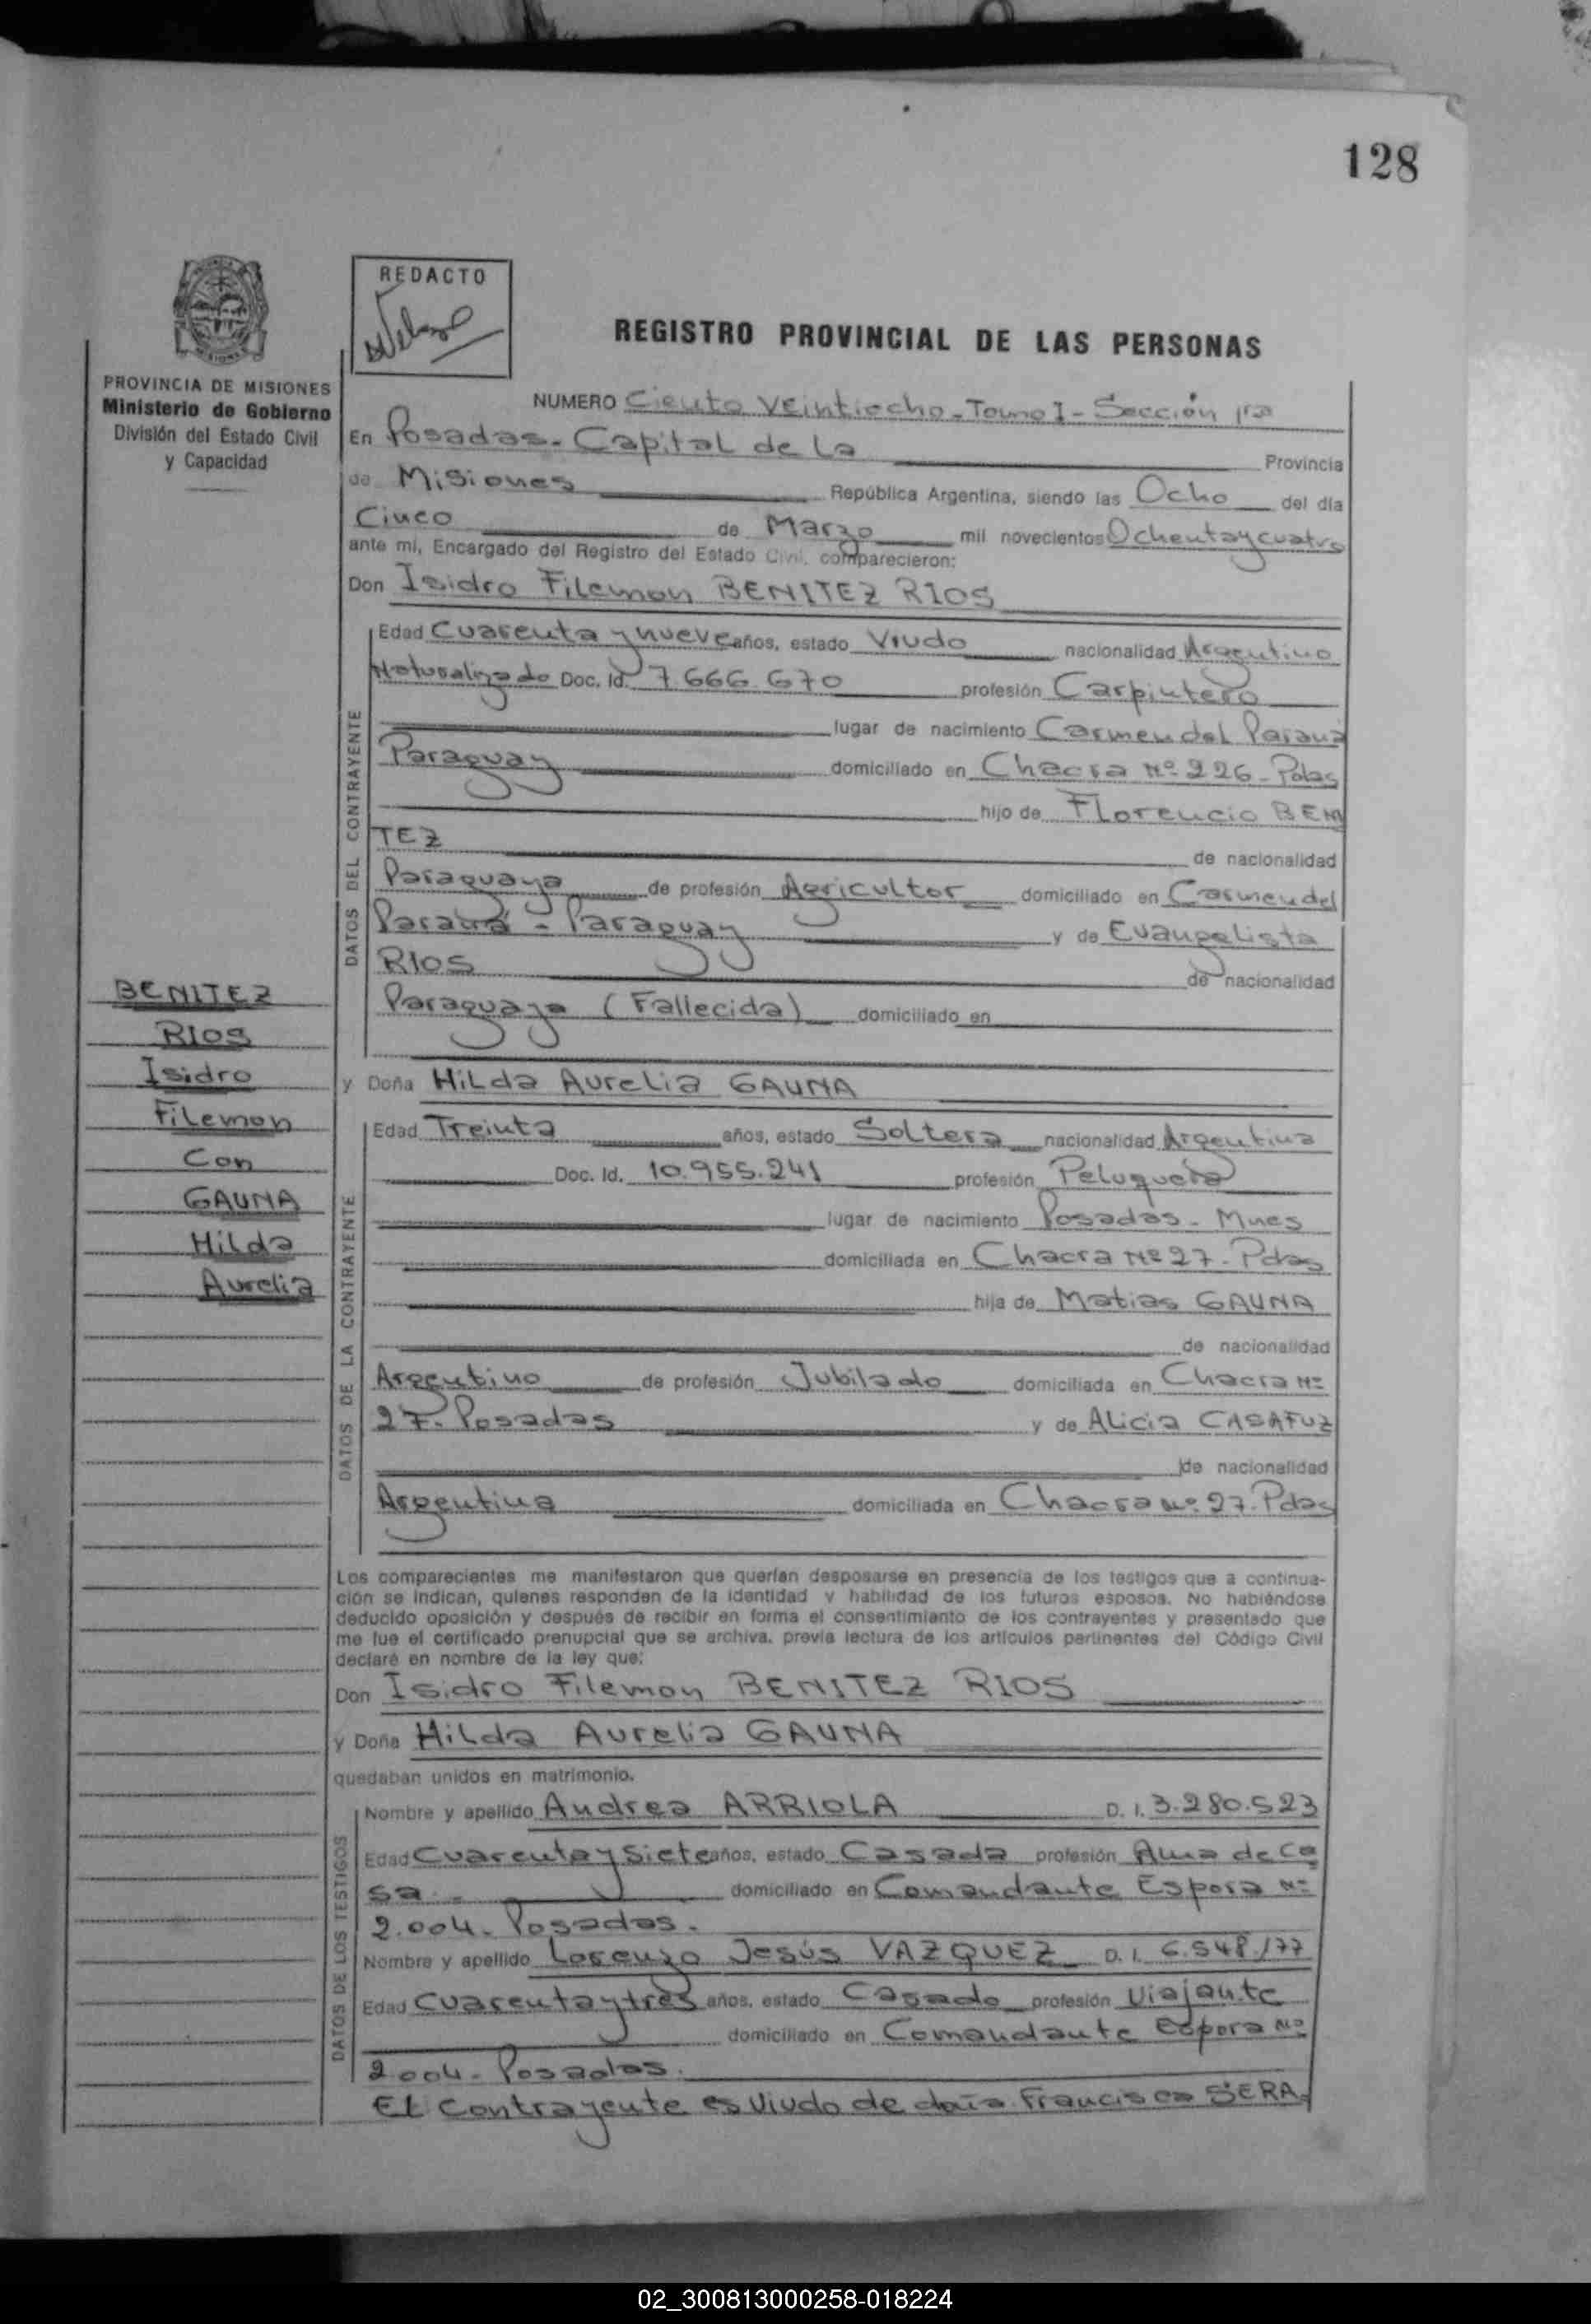 128
REDACTO
REGISTRO PROVINCIAL DE LAS PERSONAS
PROVINCIA DE MISIONES
Ministerio de Gobierno
División del Estado Civil
y Capacidad
NUMERO Ciento Veintiocho - Tomo I - Sección 1ra
En Posadas - Capital de La Provincia
de Misiones República Argentina, siendo las Ocho del día
Cinco de Marzo mil novecientos Ochenta y cuatro
ante mí, Encargado del Registro del Estado Civil, comparecieron:
Don Isidro Filemon BENITEZ RIOS
DATOS DEL CONTRAYENTE
Edad Cuarenta y nueve años, estado Viudo nacionalidad Argentino
Naturalizado Doc. Id. 7.666.670 profesión Carpintero
lugar de nacimiento Carmen del Paraná
Paraguay domiciliado en Chacra Nº 226 - Pdas
hijo de Florencio BENI
TEZ de nacionalidad
Paraguaya de profesión Agricultor domiciliado en Carmen del
Paraná - Paraguay y de Evangelista
RIOS de nacionalidad
Paraguaya (Fallecida) domiciliado en
BENITEZ
RIOS
Isidro
Filemon
Con
GAUNA
Hilda
Aurelia
y Doña Hilda Aurelia GAUNA
DATOS DE LA CONTRAYENTE
Edad Treinta años, estado Soltera nacionalidad Argentina
Doc. Id. 10.955.241 profesión Peluquera
lugar de nacimiento Posadas - Mnes
domiciliada en Chacra Nº 27 - Pdas
hija de Matias GAUNA
de nacionalidad
Argentino de profesión Jubilado domiciliada en Chacra Nº
27. Posadas y de Alicia CASAFUZ
de nacionalidad
Argentina domiciliada en Chacra Nº 27. Pdas
Los comparecientes me manifestaron que querían desposarse en presencia de los testigos que a continua-
ción se indican, quienes responden de la identidad y habilidad de los futuros esposos. No habiéndose
deducido oposición y después de recibir en forma el consentimiento de los contrayentes y presentado que
me fue el certificado prenupcial que se archiva, previa lectura de los artículos pertinentes del Código Civil
declaré en nombre de la ley que:
Don Isidro Filemon BENITEZ RIOS
y Doña Hilda Aurelia GAUNA
quedaban unidos en matrimonio.
DATOS DE LOS TESTIGOS
Nombre y apellido Andrea ARRIOLA D. I. 3.280.523
Edad Cuarenta y Siete años, estado Casada profesión Ama de Ca
sa.- domiciliado en Comandante Espora Nº
2.004. Posadas.
Nombre y apellido Lorenzo Jesús VAZQUEZ D. I. 6.548.177
Edad Cuarenta y tres años, estado Casado profesión Viajante
domiciliado en Comandante Espora Nº
2004. Posadas.
El Contrayente es viudo de doña Francisca SERA
02_300813000258-018224